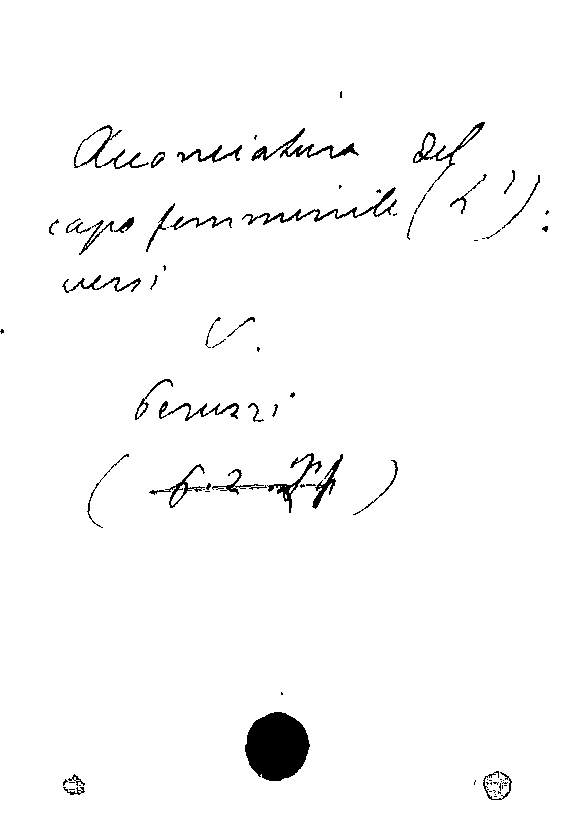 Acconciatura del
capo femminile (L'):
versi
V.
Peruzzi
( )